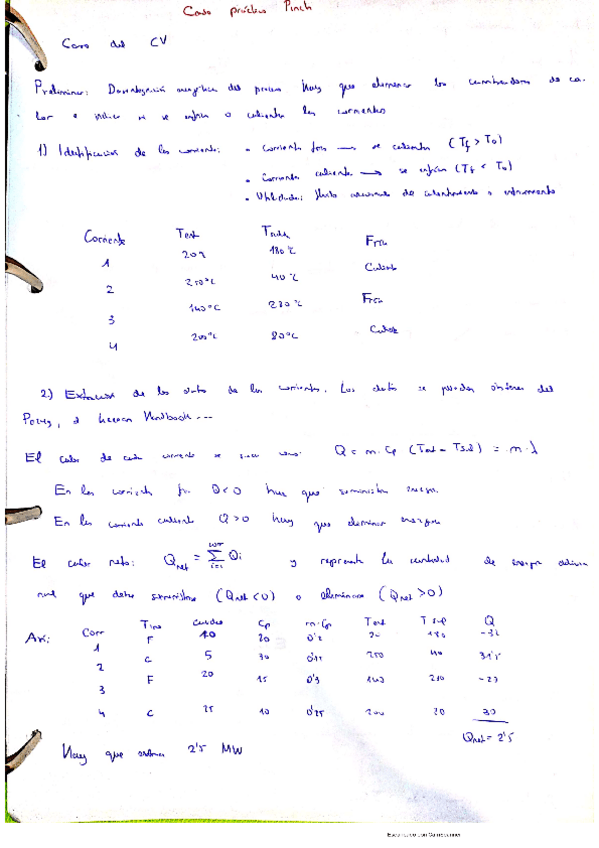 Caso práctico Pinch
Caso del CV
Preliminar: Desintegración energética del proceso. Hay que eliminar los cambiadores de ca-
lor e indicar si se enfría o calienta las corrientes
1) Identificación de las corrientes: • Corriente fría → se calienta (Tf > To)
• Corriente caliente → se enfría (Tf < To)
• Utilidades: flujo adicional de calentamiento o enfriamiento
Corriente Tent Tsalida
1 20ºC 180ºC Fría
2 250ºC 40ºC Caliente
3 140ºC 230ºC Fría
4 200ºC 80ºC Caliente
2) Extracción de los datos de las corrientes. Los datos se pueden obtener del
Perry, Handbook...
El calor de cada corriente se como: Q = m·Cp (Tent - Tsal) = m·λ
En las corrientes frías Q<0 hay que suministrar energía.
En las corrientes calientes Q>0 hay que eliminar energía
El calor neto: Qnet = Σ Qi y representa la cantidad de energía adicio
nal que debe suministrarse (Qnet<0) o eliminarse (Qnet>0)
Así: Corr Tipo Caudal Cp m·Cp Tent T sup Q
1 F 10 20 0'2 20 180 -32
2 C 5 30 0'15 250 40 31'5
3 F 20 15 0'3 140 230 -27
4 C 25 10 0'25 200 80 30
Qnet = 2'5
Hay que extraer 2'5 MW
Escaneado con CamScanner